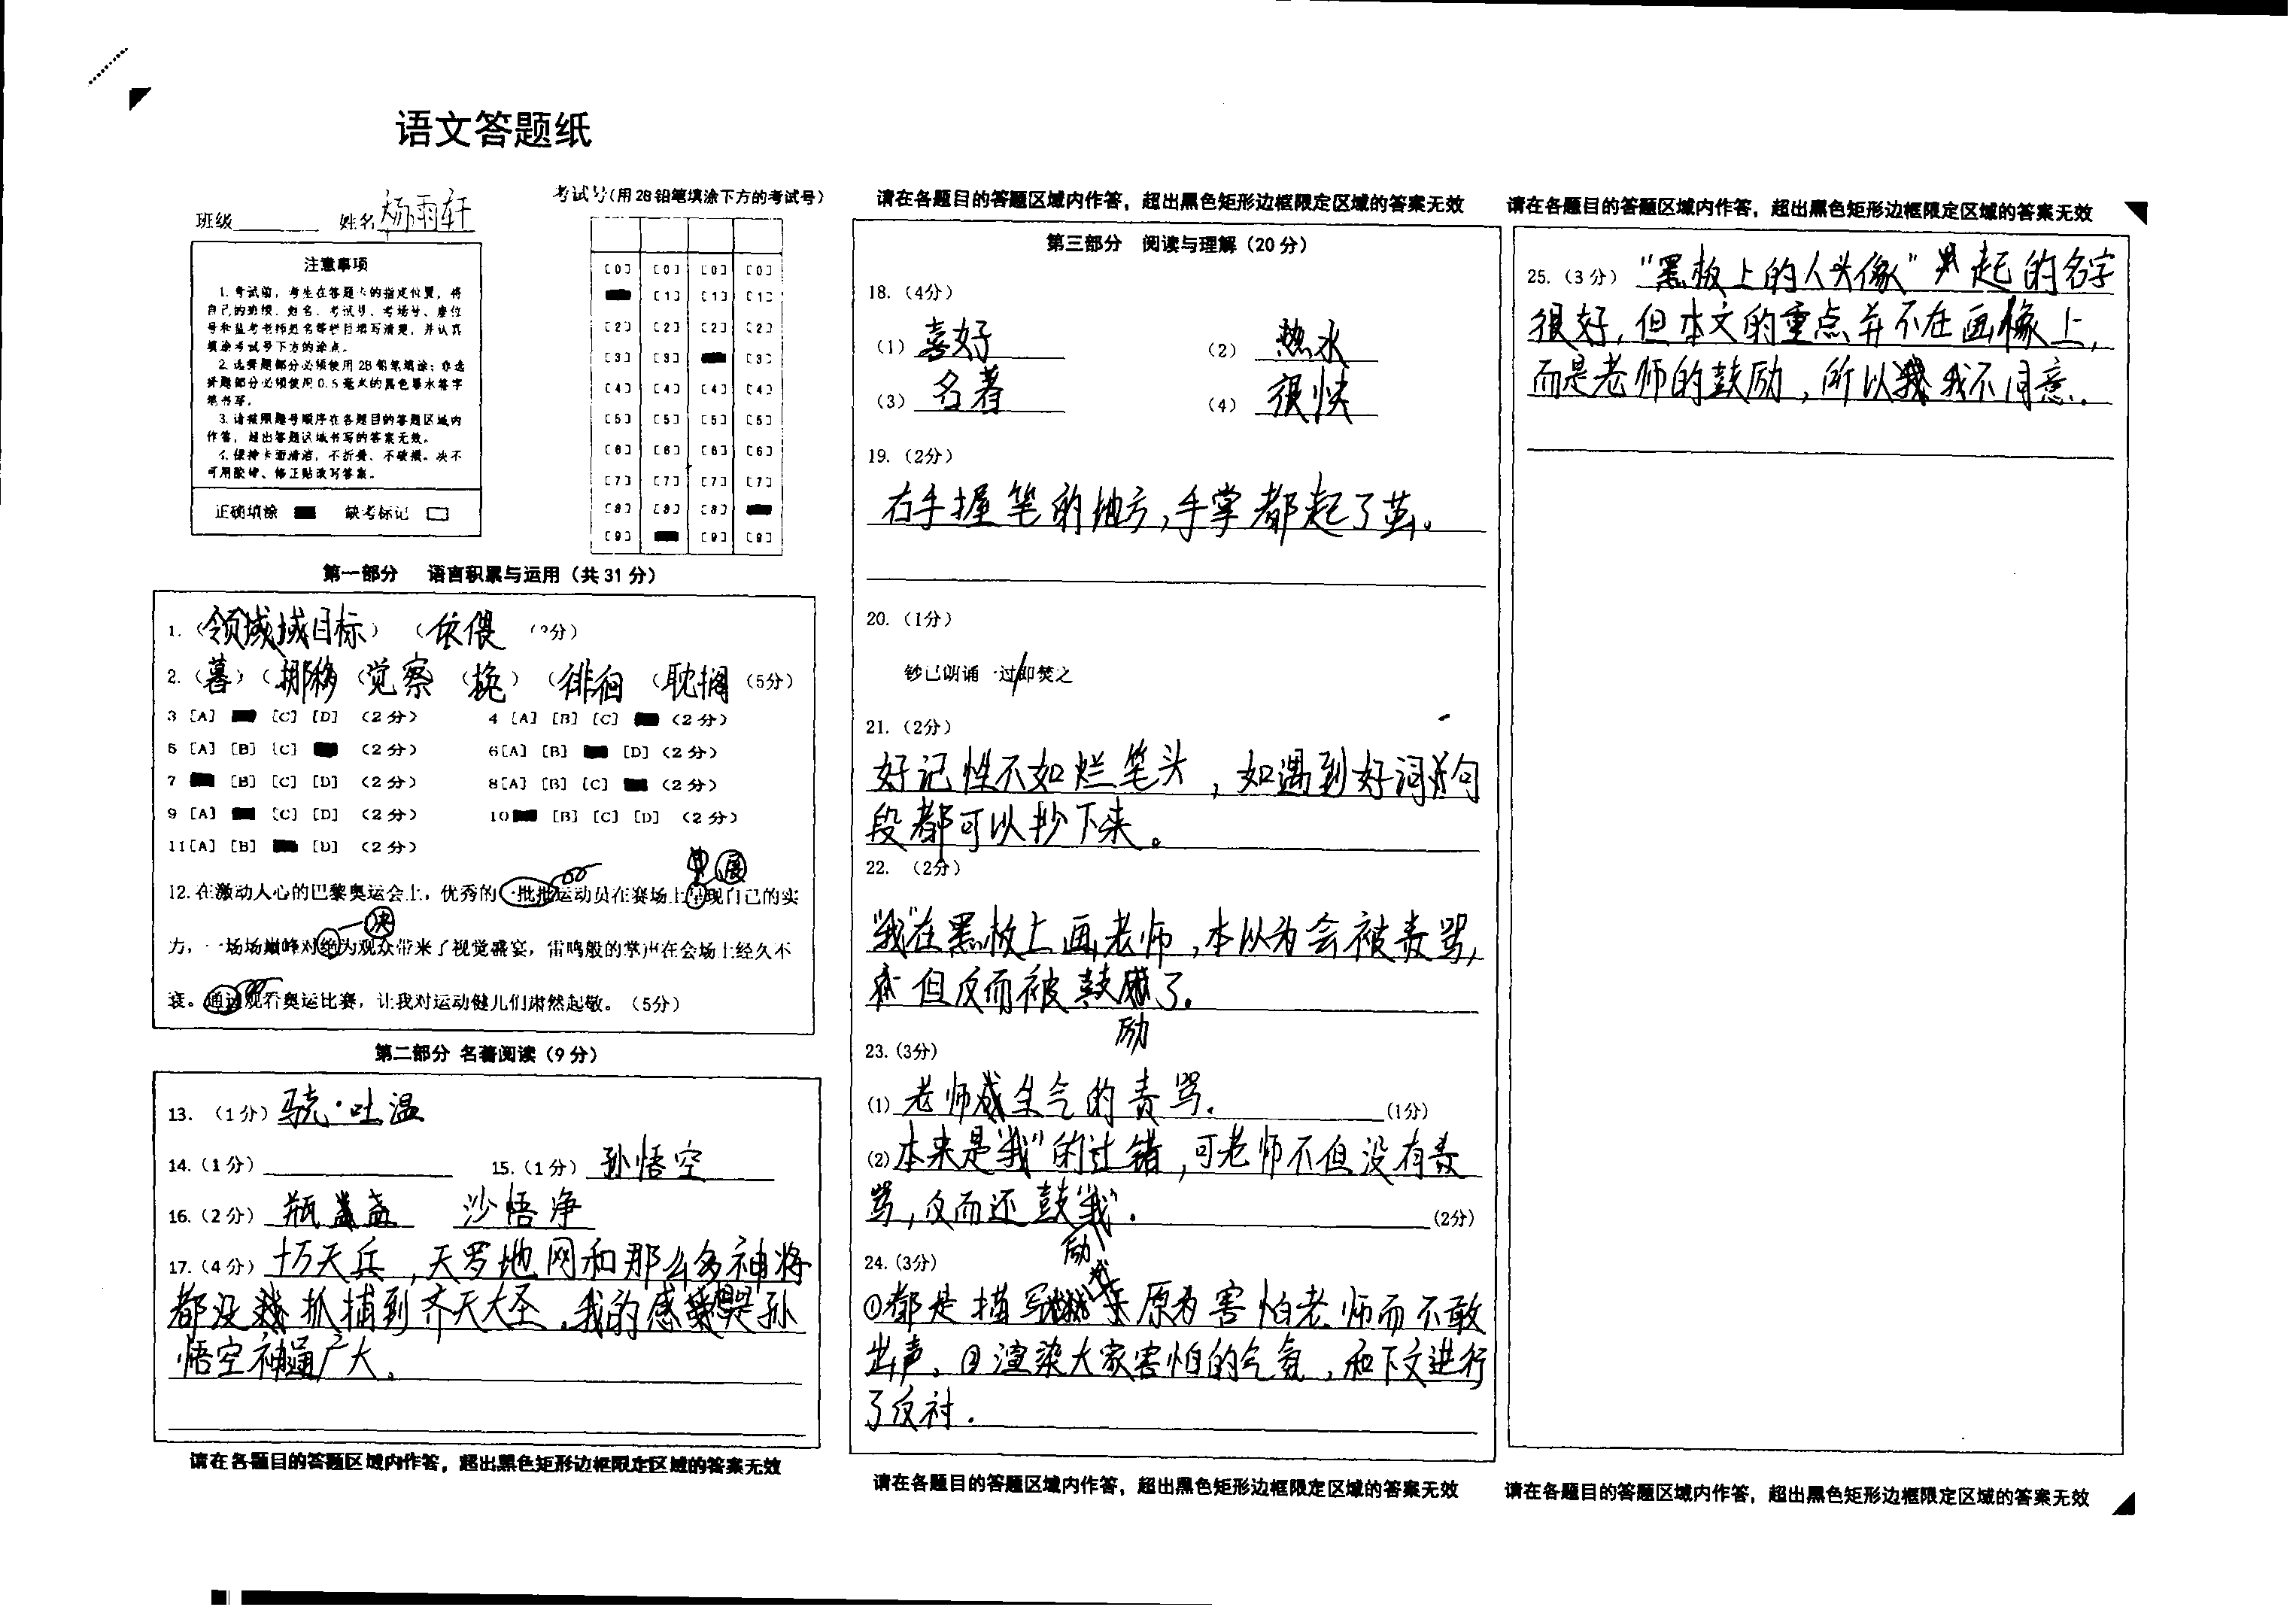 语文答题纸
班级 姓名 杨雨轩
考试号(用2B铅笔填涂下方的考试号)
注意事项
1. 考试前，考生在答题卡的指定位置，将
自己的班级、姓名、考试号、考场号、座位
号和监考老师姓名等栏目填写清楚，并认真
填涂考试号下方的涂点。
2. 选择题部分必须使用2B铅笔填涂；非选
择题部分必须使用0.5毫米的黑色墨水签字
笔书写。
3. 请按照题号顺序在各题目的答题区域内
作答，超出答题区域书写的答案无效。
4. 保持卡面清洁，不折叠、不破损。决不
可用胶带、修正贴改写答案。
正确填涂 缺考标记
[0] [0] [0] [0]
[1] [1] [1]
[2] [2] [2] [2]
[3] [3] [3]
[4] [4] [4] [4]
[5] [5] [5] [5]
[6] [6] [6] [6]
[7] [7] [7] [7]
[8] [8] [8]
[9] [9] [9]
第一部分 语言积累与运用（共31分）
1.（领域 目标）（依偎 （2分）
2.（暮）（挪移（觉察（换）（徘徊（耽搁（5分）
3 [A] [C] [D] （2分） 4 [A] [B] [C] （2分）
5 [A] [B] [C] （2分） 6[A] [B] [D]（2分）
7 [B] [C] [D] （2分） 8[A] [B] [C] （2分）
9 [A] [C] [D] （2分） 10 [B] [C] [D] （2分）
11[A] [B] [D] （2分）
展
12. 在激动人心的巴黎奥运会上，优秀的一批批运动员在赛场上呈现自己的实
决
力，一场场巅峰对绝为观众带来了视觉盛宴，雷鸣般的掌声在会场上经久不
衰。通过观看奥运比赛，让我对运动健儿们肃然起敬。（5分）
第二部分 名著阅读（9分）
13.（1分）骁·吐温
14.（1分） 15.（1分）孙悟空
16.（2分）瓶盏 沙悟净
17.（4分）十万天兵，天罗地网和那么多神将
都没抓捕到齐天大圣，我的感想是孙
悟空神通广大。
请在各题目的答题区域内作答，超出黑色矩形边框限定区域的答案无效
请在各题目的答题区域内作答，超出黑色矩形边框限定区域的答案无效
第三部分 阅读与理解（20分）
18.（4分）
（1）喜好 （2）热水
（3）名著 （4）很快
19.（2分）
右手握笔的地方，手掌都起了茧。
20.（1分）
钞已朗诵一过/即焚之
21.（2分）
好记性不如烂笔头，如遇到好词句
段都可以抄下来。
22. （2分）
“我”在黑板上画老师，本以为会被责骂，
但反而被鼓励了。
23.（3分）
(1) 老师生气的责骂。(1分)
(2) 本来是“我”的过错，可老师不但没有责
骂，反而还鼓励“我”。(2分)
24.（3分）
①都是描写 原为害怕老师而不敢
出声。②渲染大家害怕的气氛，和下文进行
了反衬。
请在各题目的答题区域内作答，超出黑色矩形边框限定区域的答案无效
请在各题目的答题区域内作答，超出黑色矩形边框限定区域的答案无效
25.（3分）“黑板上的人头像”起的名字
很好，但本文的重点并不在画像上，
而是老师的鼓励，所以我不同意。
请在各题目的答题区域内作答，超出黑色矩形边框限定区域的答案无效